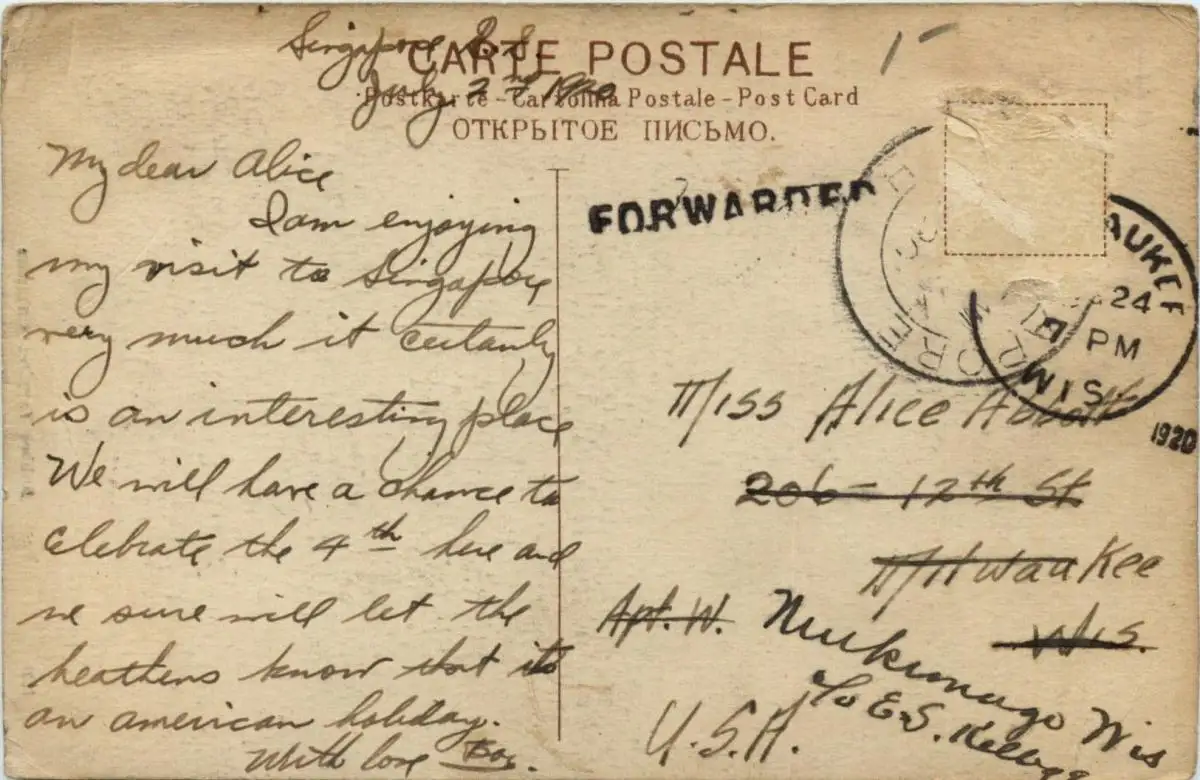 Singapore S.S.
July 2nd 1920
CARTE POSTALE
Postkarte - Cartolina Postale - Post Card
ОТКРЫТОЕ ПИСЬМО.
My dear Alice
I am enjoying
my visit to Singapore
very much it certanly
is an interesting place
We will have a chance to
celebrate the 4th here and
we sure will let the
heathens know that its
an american holiday.
With love
FORWARDED
AUKEE
24
PM
WIS
1920
Miss Alice Abbott
206 - 12th St
Milwaukee
Wis.
Apt. W.
Mukwonago Wis
c/o E. S. Kellogg
U.S.A.